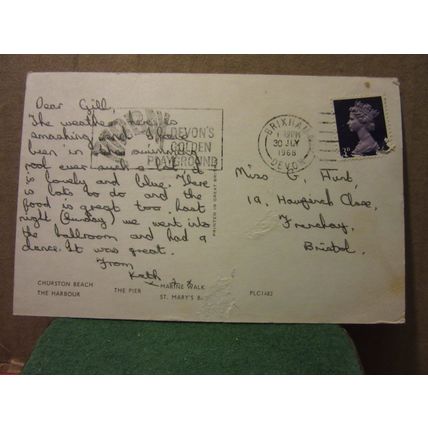 Dear Gill,
The weather here is
smashing and I have
been in the swimming
pool ever such a lot. It
is lovely and blue. There
is lots to do and the
food is great too. Last
night (Sunday) we went into
the ballroom and had a
dance. It was great.
From
Kath
DEVON'S
GOLDEN
PLAYGROUND
BRIXHAM
30 JLY
1968
DEVON
Miss G. Hunt,
19, Close,
Frenchay,
Bristol.
PRINTED IN GREAT
CHURSTON BEACH
THE HARBOUR
THE PIER
MARINE WALK
ST. MARY'S
PLC1482